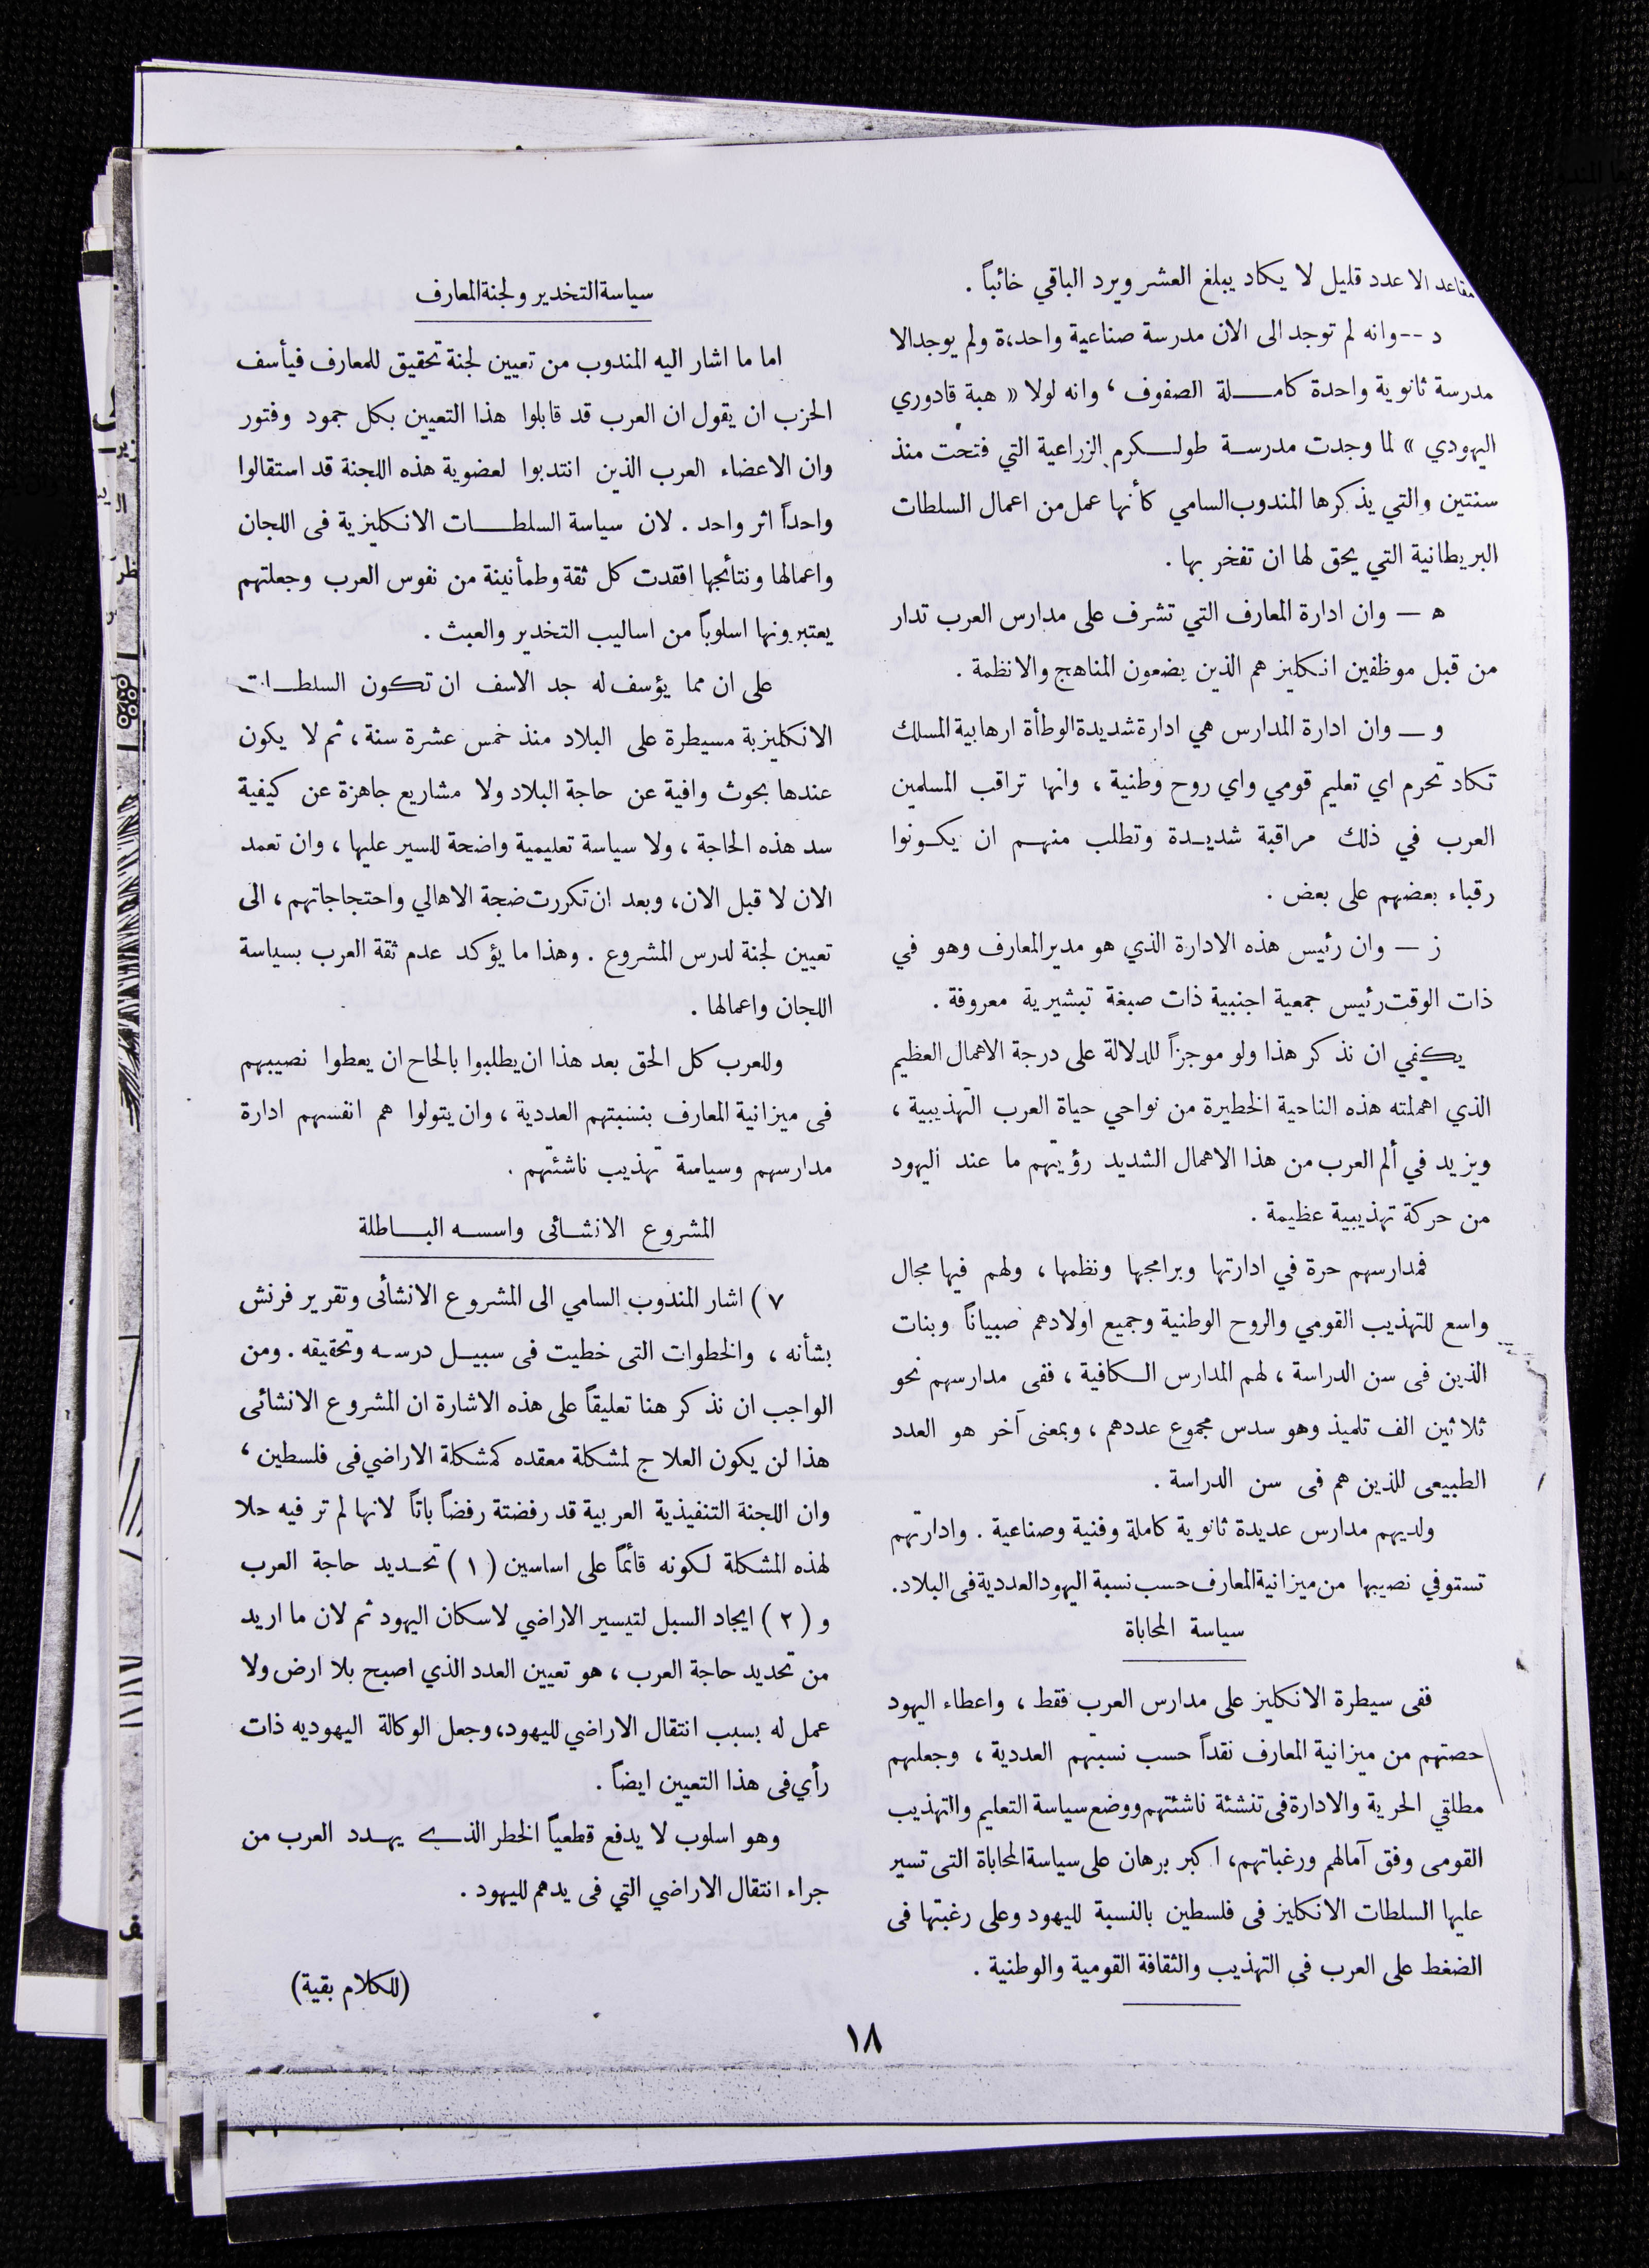 مقاعد الا عدد قليل لا يكاد يبلغ العشر ويرد الباقي خائباً .
د -- وانه لم توجد الى الان مدرسة صناعية واحدة، ولم يوجد الا
مدرسة ثانوية واحدة كاملة الصفوف ، وانه لولا « هبة قادوري
اليهودي » لما وجدت مدرسة طولكرم الزراعية التي فتحت منذ
سنتين والتي يذكرها المندوب السامي كأنها عمل من اعمال السلطات
البريطانية التي يحق لها ان تفخر بها .
ه — وان ادارة المعارف التي تشرف على مدارس العرب تدار
من قبل موظفين انكليز هم الذين يضعون المناهج والانظمة .
و — وان ادارة المدارس هي ادارة شديدة الوطأة ارهابية المسلك
تكاد تحرم اي تعليم قومي واي روح وطنية ، وانها تراقب المسلمين
العرب في ذلك مراقبة شديدة وتطلب منهم ان يكونوا
رقباء بعضهم على بعض .
ز — وان رئيس هذه الادارة الذي هو مدير المعارف وهو في
ذات الوقت رئيس جمعية اجنبية ذات صبغة تبشيرية معروفة .
يكفي ان نذكر هذا ولو موجزاً للدلالة على درجة الاهمال العظيم
الذي اهملته هذه الناحية الخطيرة من نواحي حياة العرب التهذيبية ،
ويزيد في ألم العرب من هذا الاهمال الشديد رؤيتهم ما عند اليهود
من حركة تهذيبية عظيمة .
فمدارسهم حرة في ادارتها وبرامجها ونظمها ، ولهم فيها مجال
واسع للتهذيب القومي والروح الوطنية وجميع اولادهم صبياناً وبنات
الذين فى سن الدراسة ، لهم المدارس الكافية ، ففى مدارسهم نحو
ثلاثين الف تلميذ وهو سدس مجموع عددهم ، وبمعنى آخر هو العدد
الطبيعى للذين هم فى سن الدراسة .
ولديهم مدارس عديدة ثانوية كاملة وفنية وصناعية . وادارتهم
تستوفي نصيبها من ميزانية المعارف حسب نسبة اليهود العددية فى البلاد .
سياسة المحاباة
ففى سيطرة الانكليز على مدارس العرب فقط ، واعطاء اليهود
حصتهم من ميزانية المعارف نقداً حسب نسبتهم العددية ، وجعلهم
مطلقي الحرية والادارة فى تنشئة ناشئتهم ووضع سياسة التعليم والتهذيب
القومى وفق آمالهم ورغباتهم، اكبر برهان على سياسة المحاباة التى تسير
عليها السلطات الانكليز فى فلسطين بالنسبة لليهود وعلى رغبتها فى
الضغط على العرب في التهذيب والثقافة القومية والوطنية .
سياسة التخدير ولجنة المعارف
اما ما اشار اليه المندوب من تعيين لجنة تحقيق للمعارف فيأسف
الحزب ان يقول ان العرب قد قابلوا هذا التعيين بكل جمود وفتور
وان الاعضاء العرب الذين انتدبوا لعضوية هذه اللجنة قد استقالوا
واحداً اثر واحد . لان سياسة السلطات الانكليزية فى اللجان
واعمالها ونتائجها افقدت كل ثقة وطمأنينة من نفوس العرب وجعلتهم
يعتبرونها اسلوباً من اساليب التخدير والعبث .
على ان مما يؤسف له جد الاسف ان تكون السلطات
الانكليزية مسيطرة على البلاد منذ خمس عشرة سنة ، ثم لا يكون
عندها بحوث وافية عن حاجة البلاد ولا مشاريع جاهزة عن كيفية
سد هذه الحاجة ، ولا سياسة تعليمية واضحة للسير عليها ، وان تعمد
الان لا قبل الان، وبعد ان تكررت ضجة الاهالي واحتجاجاتهم ، الى
تعيين لجنة لدرس المشروع . وهذا ما يؤكد عدم ثقة العرب بسياسة
اللجان واعمالها .
وللعرب كل الحق بعد هذا ان يطلبوا بالحاح ان يعطوا نصيبهم
فى ميزانية المعارف بنسبتهم العددية ، وان يتولوا هم انفسهم ادارة
مدارسهم وسياسة تهذيب ناشئتهم .
المشروع الانشائى واسسه الباطلة
٧ ) اشار المندوب السامي الى المشروع الانشائى وتقرير فرنش
بشأنه ، والخطوات التى خطيت فى سبيل درسه وتحقيقه . ومن
الواجب ان نذكر هنا تعليقاً على هذه الاشارة ان المشروع الانشائى
هذا لن يكون العلاج لمشكلة معقده كمشكلة الاراضي فى فلسطين ،
وان اللجنة التنفيذية العربية قد رفضتة رفضاً باتاً لانها لم تر فيه حلا
لهذه المشكلة لكونه قائماً على اساسين ( ١ ) تحديد حاجة العرب
و ( ٢ ) ايجاد السبل لتيسير الاراضي لاسكان اليهود ثم لان ما اريد
من تحديد حاجة العرب ، هو تعيين العدد الذي اصبح بلا ارض ولا
عمل له بسبب انتقال الاراضي لليهود، وجعل الوكالة اليهوديه ذات
رأي فى هذا التعيين ايضاً .
وهو اسلوب لا يدفع قطعياً الخطر الذي يهدد العرب من
جراء انتقال الاراضي التي فى يدهم لليهود .
(للكلام بقية)
١٨